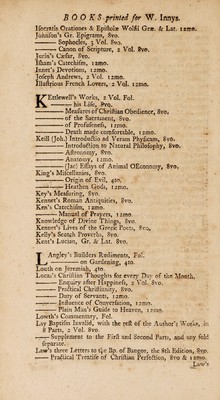 BOOKS printed for W. Innys.
Isocratis Orationes & Epistolæ Wolfii Græ. & Lat. 12mo.
Johnson's Gr. Epigrams, 8vo.
—— Sophocles, 3 Vol. 8vo.
—— Canon of Scripture, 2 Vol. 8vo.
Jurin's Cæsar, 8vo.
Isham's Catechism, 12mo.
Innet's Devotions, 12mo.
Joseph Andrews, 2 Vol. 12mo.
Illustrious French Lovers, 2 Vol. 12mo.
Kettlewell's Works, 2 Vol. Fol.
—— his Life, 8vo.
—— Measures of Christian Obedience, 8vo.
—— of the Sacrament, 8vo.
—— of Profuseness, 12mo.
—— Death made comfortable, 12mo.
Keill (Joh.) Introductio ad Veram Physicam, 8vo.
—— Introduction to Natural Philosophy, 8vo.
—— Astronomy, 8vo.
—— Anatomy, 12mo.
—— (Ja:) Essays of Animal OEconomy, 8vo.
King's Miscellanies, 8vo.
—— Origin of Evil, 4to.
—— Heathen Gods, 12mo.
Key's Measuring, 8vo.
Kennet's Roman Antiquities, 8vo.
Ken's Catechism, 12mo.
—— Manual of Prayers, 12mo.
Knowledge of Divine Things, 8vo.
Kennet's Lives of the Greek Poets, 8vo.
Kelly's Scotch Proverbs, 8vo.
Kent's Lucian, Gr. & Lat. 8vo.
Langley's Builders Rudiments, Fol.
—— on Gardening, 4to.
Louth on Jeremiah, 4to.
Lucas's Christian Thoughts for every Day of the Month,
—— Enquiry after Happiness, 2 Vol. 8vo.
—— Practical Christianity, 8vo.
—— Duty of Servants, 12mo.
—— Influence of Conversation, 12mo.
—— Plain Man's Guide to Heaven, 12mo.
Lowth's Commentary, Fol.
Lay Baptism Invalid, with the rest of the Author's Works, in
8 Parts, 2 Vol. 8vo.
—— Supplement to the First and Second Parts, and any sold
separate.
Law's three Letters to the Bp. of Bangor, the 8th Edition, 8vo.
—— Practical Treatise of Christian Perfection, 8vo & 12mo.
Law's